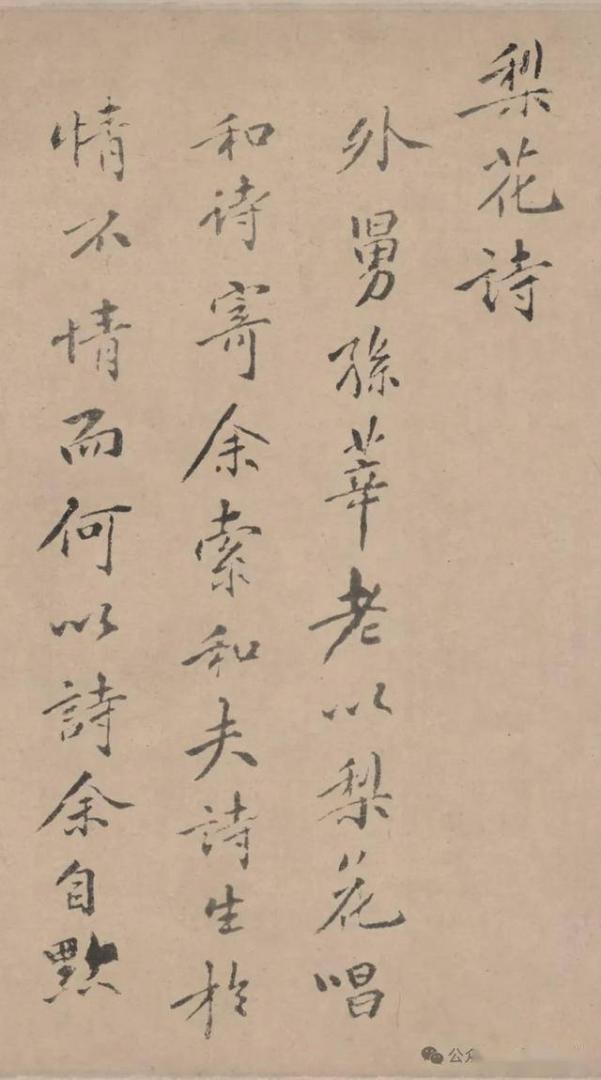 梨花詩
外舅孫莘老以梨花唱
和詩寄余索和夫詩生於
情不情而何以詩余自黙
公众